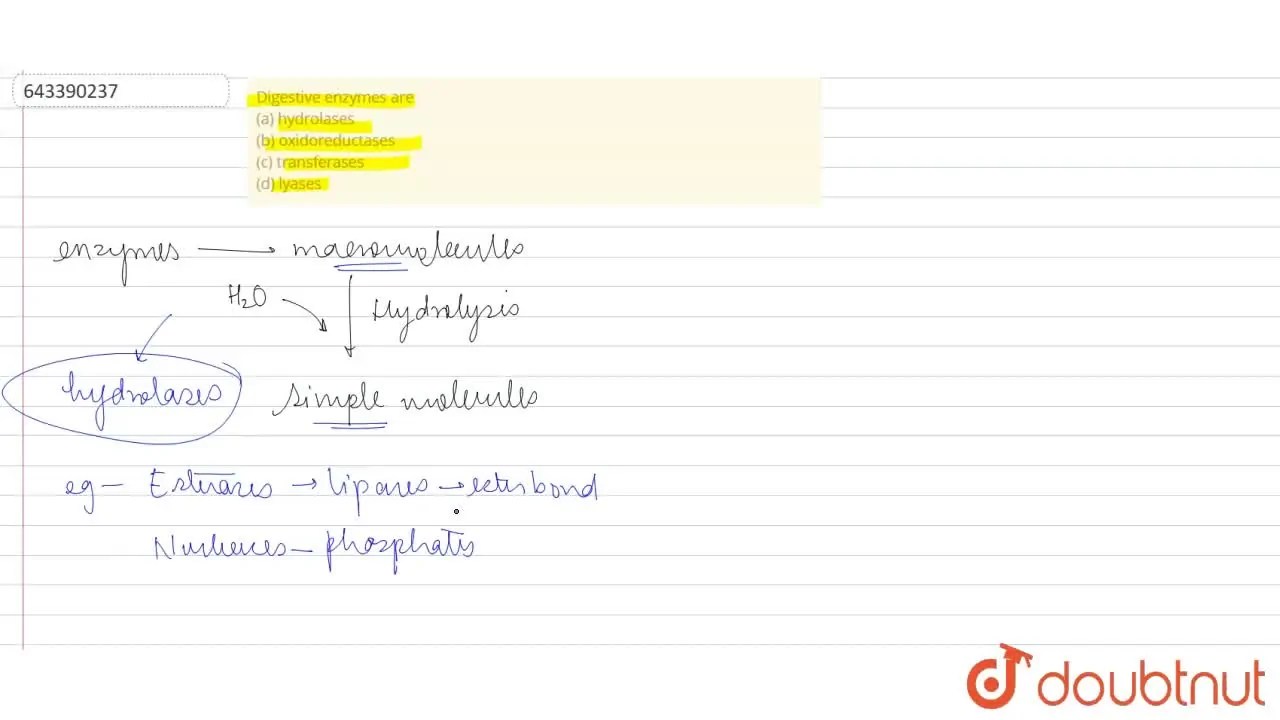 643390237
Digestive enzymes are
(a) hydrolases
(b) oxidoreductases
(c) transferases
(d) lyases
enzymes → macromolecules
H₂O
Hydrolysis
hydrolases
simple molecules
eg - Esterases → lipases → ester bond
Nucleases - phosphates
doubtnut